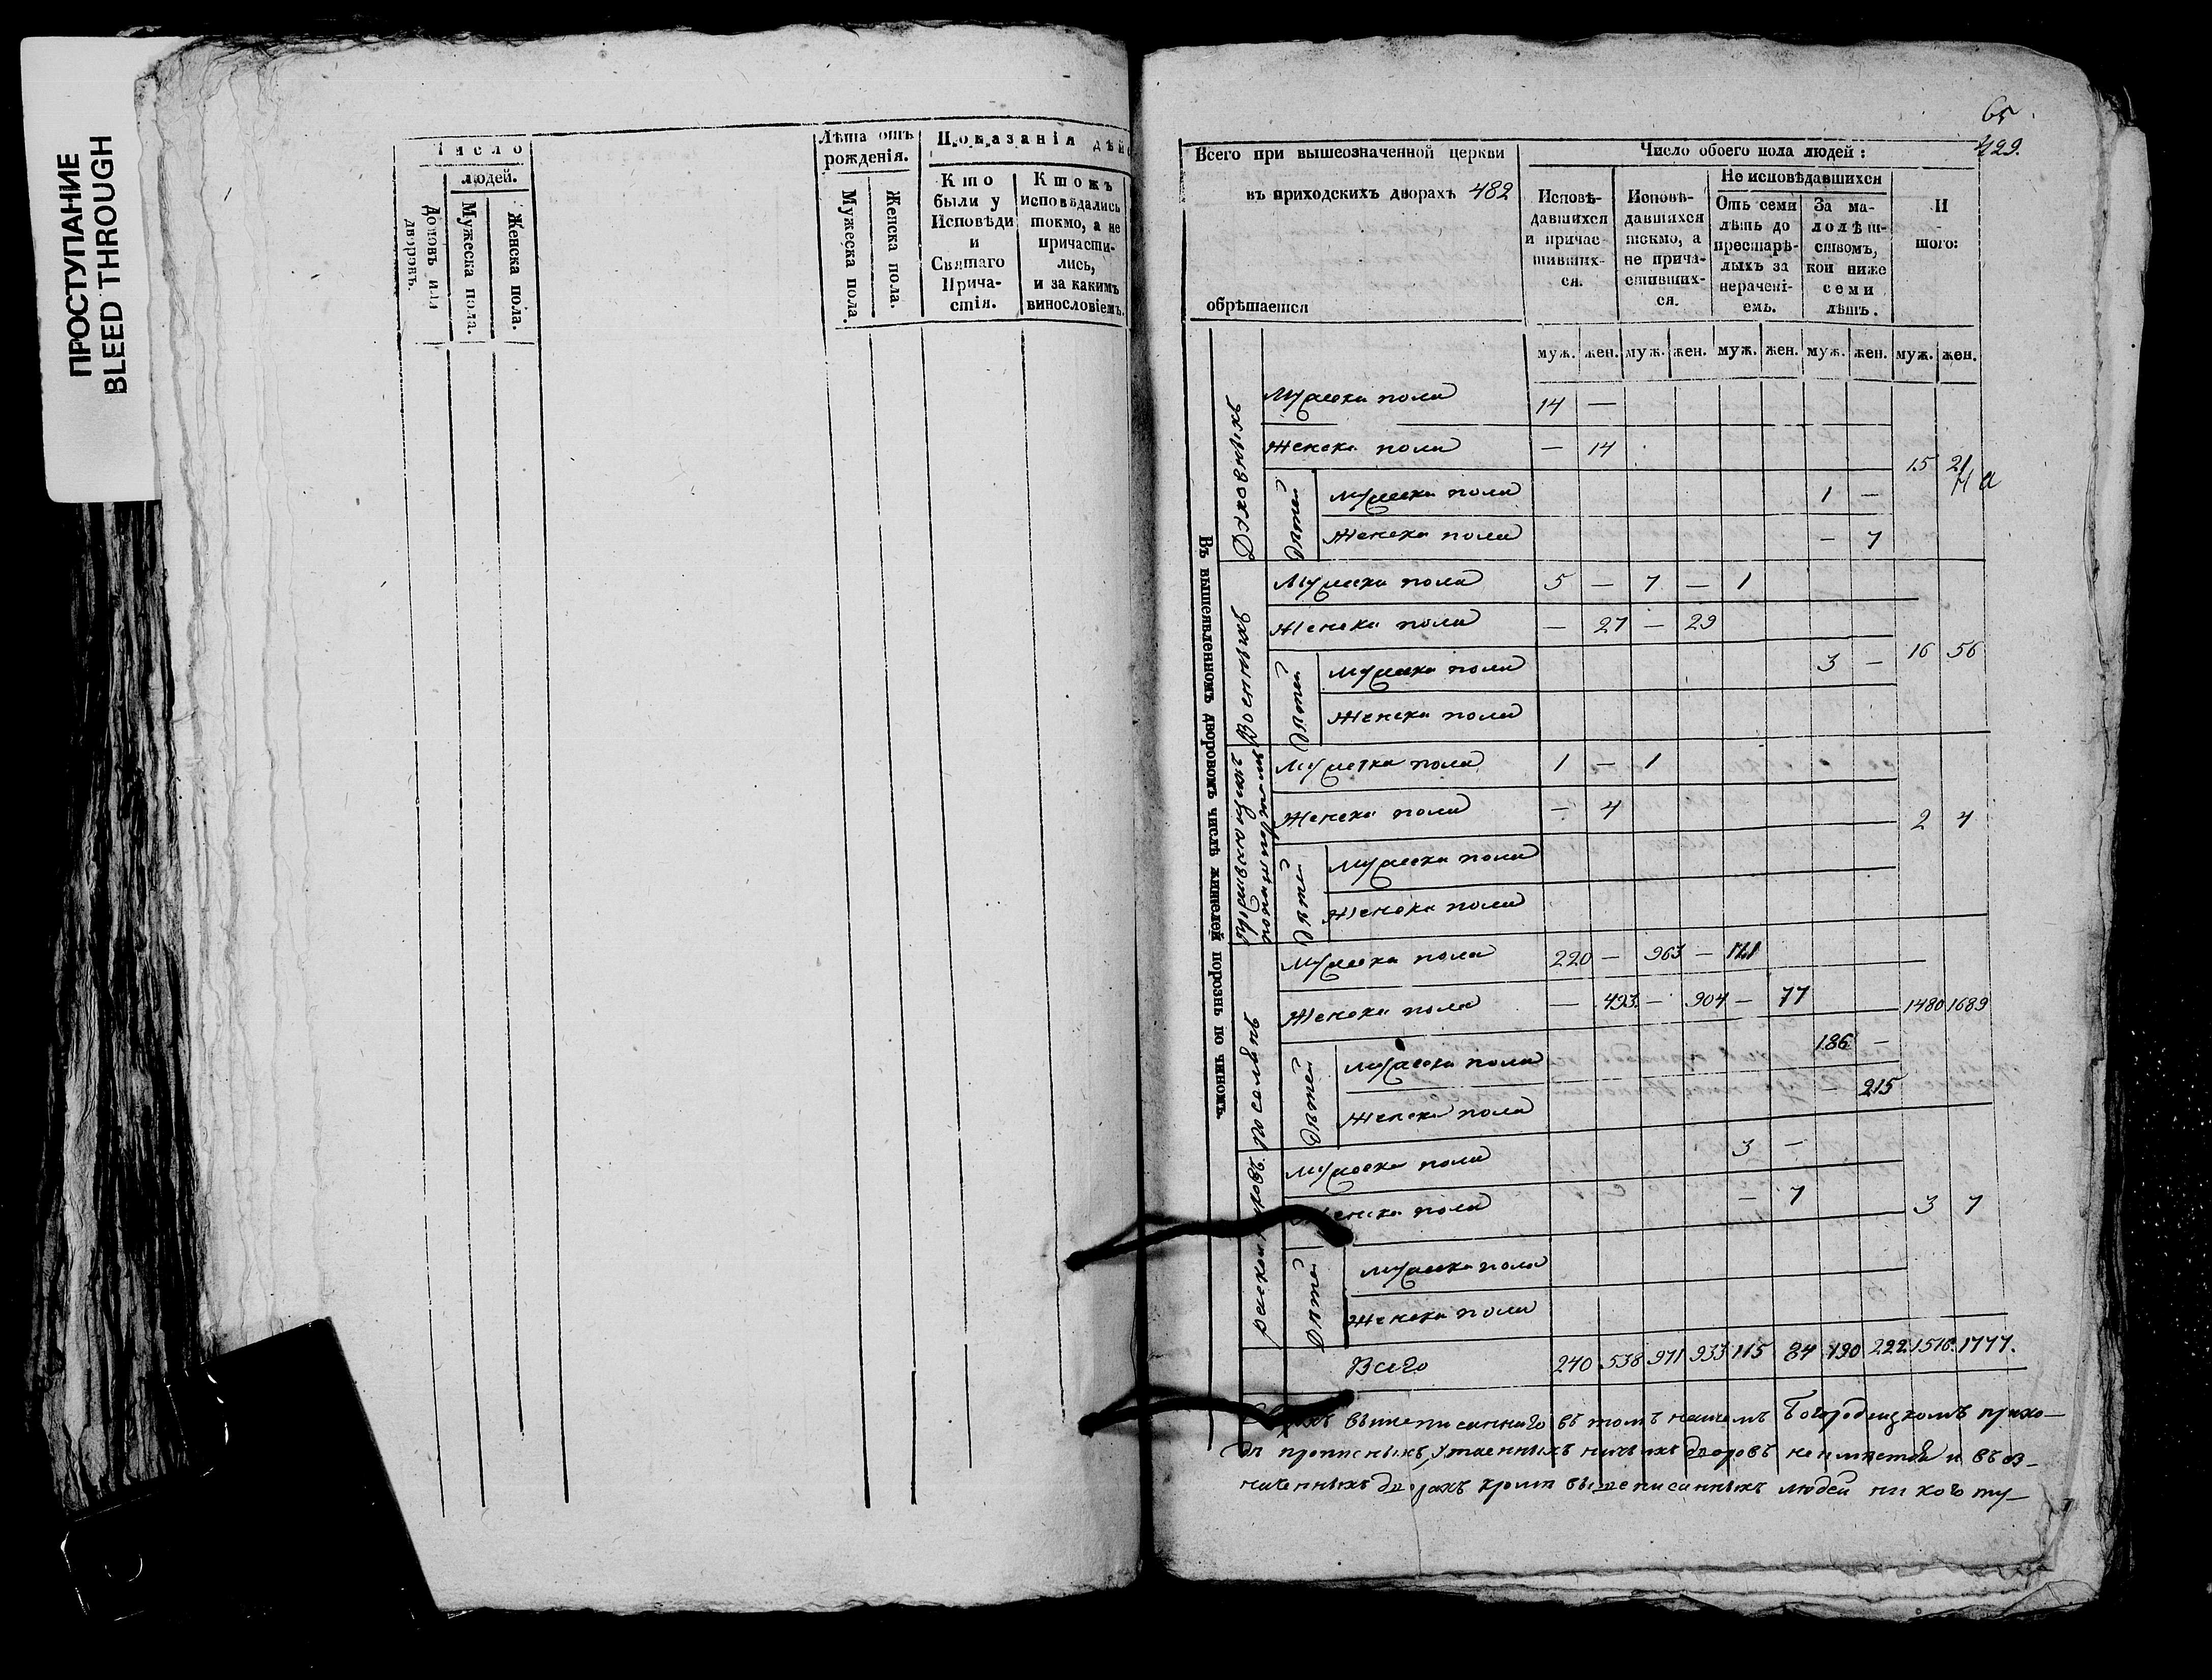 ПРОСТУПАНИЕ
BLEED THROUGH
Число
людей.
Домовъ или дворовъ.
Мужеска пола.
Женска пола.
Лѣта отъ рожденія.
Мужеска пола.
Женска пола.
Показанія дѣй
Кто были у Исповѣди и Святаго Прича-стія.
Ктожъ исповѣдались токмо, а не причасти-лись, и за какимъ винословіемъ.
65
429.
Всего при вышеозначенной церкви
въ приходскихъ дворахъ 482
обрѣтается
Число обоего пола людей:
Исповѣ-давшихся и причас-тивших-ся.
Исповѣ-давшихся токмо, а не прича-стивших-ся.
Не исповѣдавшихся
Отъ семи лѣтъ до престарѣ-лыхъ за нерачені-емъ.
За ма-лолѣт-ствомъ, кои ниже семи лѣтъ.
И того:
муж. жен. муж. жен. муж. жен. муж. жен. муж. жен.
Въ вышеявленномъ дворовомъ числѣ жителей порознь по чиномъ
Духовныхъ
Мужеска пола 14 —
Женска пола — 14
15 21
Дѣтей
Мужеска пола 1 —
Женска пола — 7
Военныхъ
Мужеска пола 5 — 7 — 1
Женска пола — 27 — 29
16 56
Дѣтей
Мужеска пола 3 —
Женска пола
Мужеска пола 1 — 1
Женска пола — 4
2 4
Дѣтей
Мужеска пола
Женска пола
Поселянъ
Мужеска пола 220 — 963 —
Женска пола — 493 — 904 — 77
1480 1689
Дѣтей
Мужеска пола 186 —
Женска пола — 215
Мужеска пола 3 —
Женска пола — 7
3 7
Дѣтей
Мужеска пола
Женска пола
Всего 240 538 971 933 115 84 190 222 1516 1777.
вышеписаннаго въ томъ нашемъ Богородицкомъ прихо-
дѣ прописныхъ, утаенныхъ ничьихъ дворовъ неимѣется и въ оз-
наченныхъ дворахъ кромѣ вышеписанныхъ людей ни кого ту-